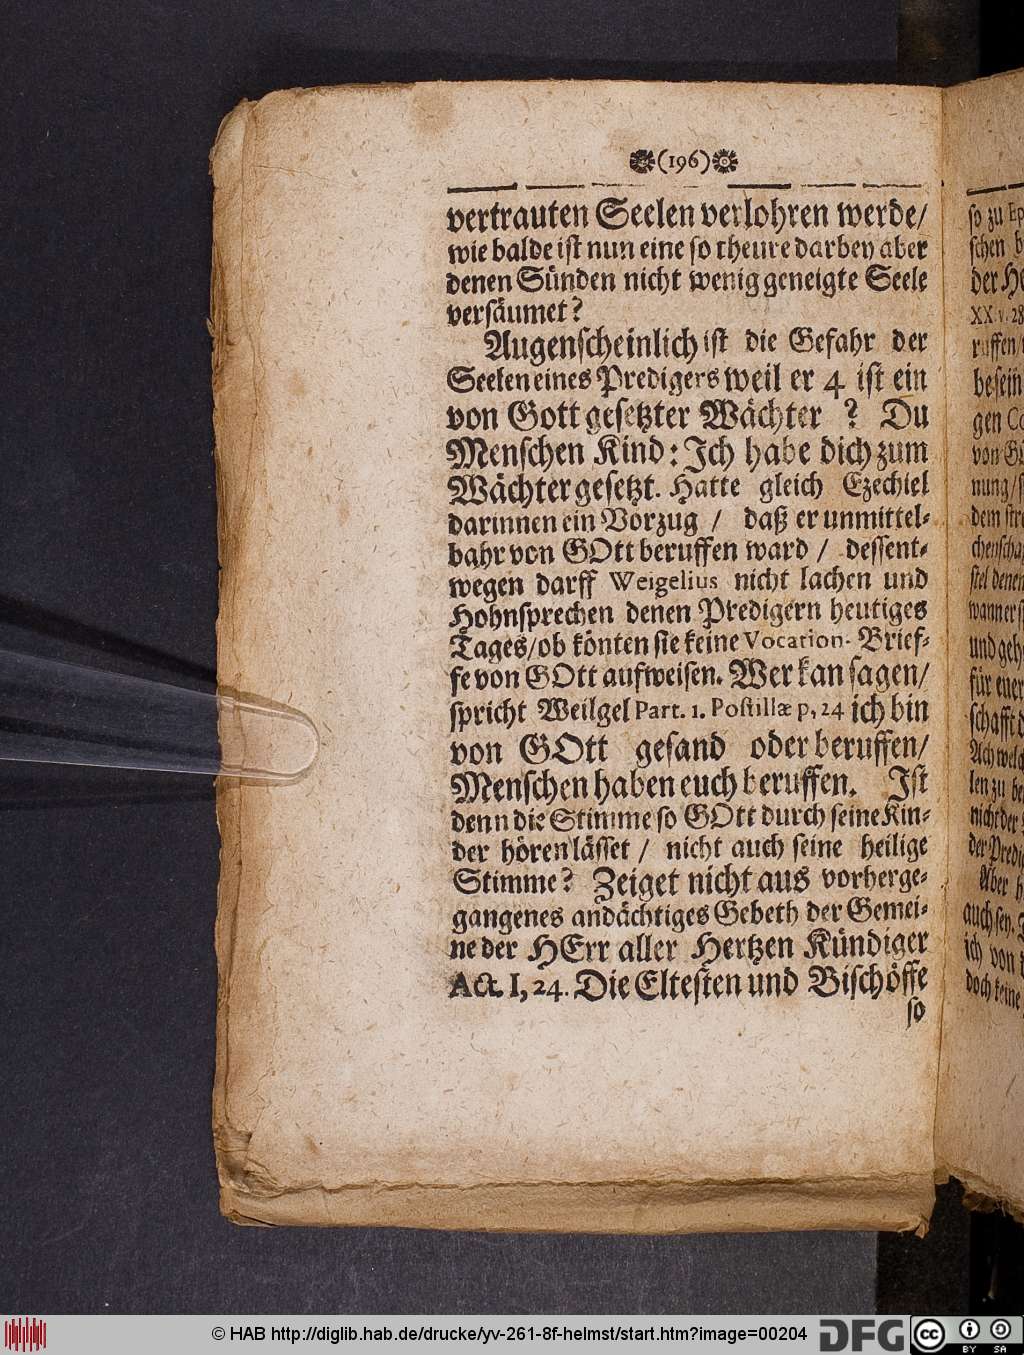 (196)
vertrauten Seelen verlohren werde/
wie balde ist nun eine so theure darbey aber
denen Sünden nicht wenig geneigte Seele
versäumet?
Augenscheinlich ist die Gefahr der
Seelen eines Predigers weil er 4 ist ein
von Gott gesetzter Wächter ? Du
Menschen Kind: Ich habe dich zum
Wächter gesetzt. Hatte gleich Ezechiel
darinnen ein Vorzug / daß er unmittel-
bahr von GOtt beruffen ward / dessent-
wegen darff Weigelius nicht lachen und
Hohnsprechen denen Predigern heutiges
Tages/ob könten sie keine Vocation- Brief-
fe von GOtt aufweisen. Wer kan sagen/
spricht Weilgel Part. 1. Postillæ p, 24 ich bin
von GOtt gesand oder beruffen/
Menschen haben euch beruffen. Ist
denn die Stimme so GOtt durch seine Kin-
der hören lässet / nicht auch seine heilige
Stimme? Zeiget nicht aus vorherge-
gangenes andächtiges Gebeth der Gemei-
ne der HErr aller Hertzen Kündiger
Act. I, 24. Die Eltesten und Bischöffe
so
so zu
schen
XX. v. 28
ruffen/
gen
von
nung/
nicht der
Aber
auch sey.
ich von
doch keine
© HAB http://diglib.hab.de/drucke/yv-261-8f-helmst/start.htm?image=00204
DFG
cc
BY SA